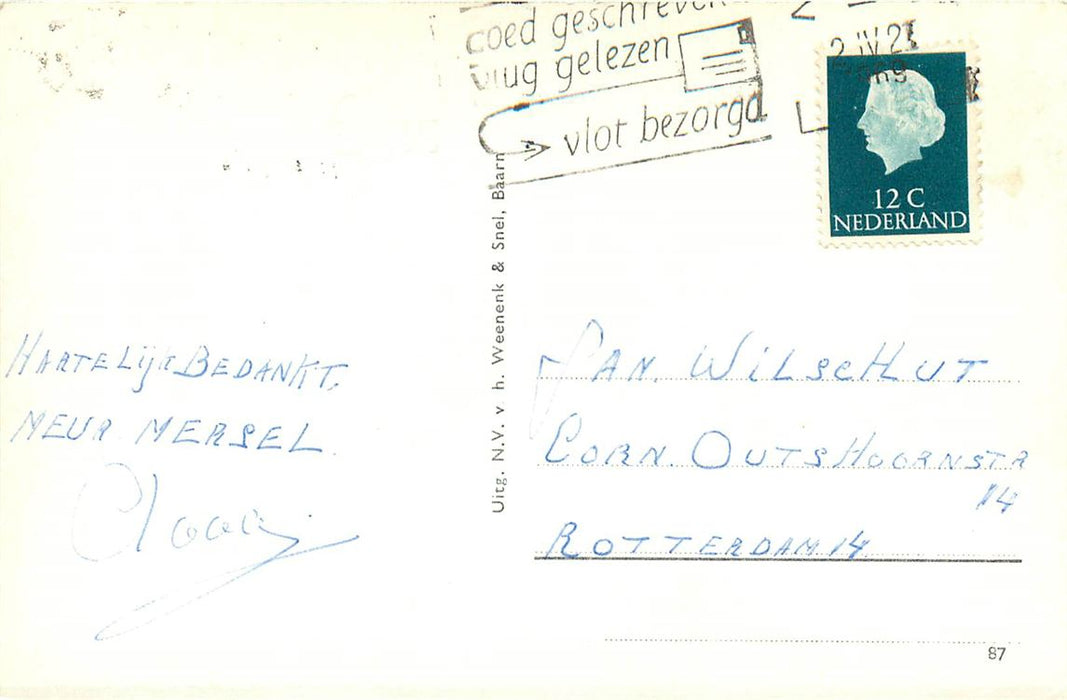 goed geschreven
vlug gelezen
vlot bezorgd
2 IV 2
12 C
NEDERLAND
Uitg. N.V. v h. Weenenk & Snel, Baarn
HARTELIJK BEDANKT.
MEUR MERSEL
JAN. WILSCHUT
CORN. OUTSHOORNSTR
14
ROTTERDAM 14
87